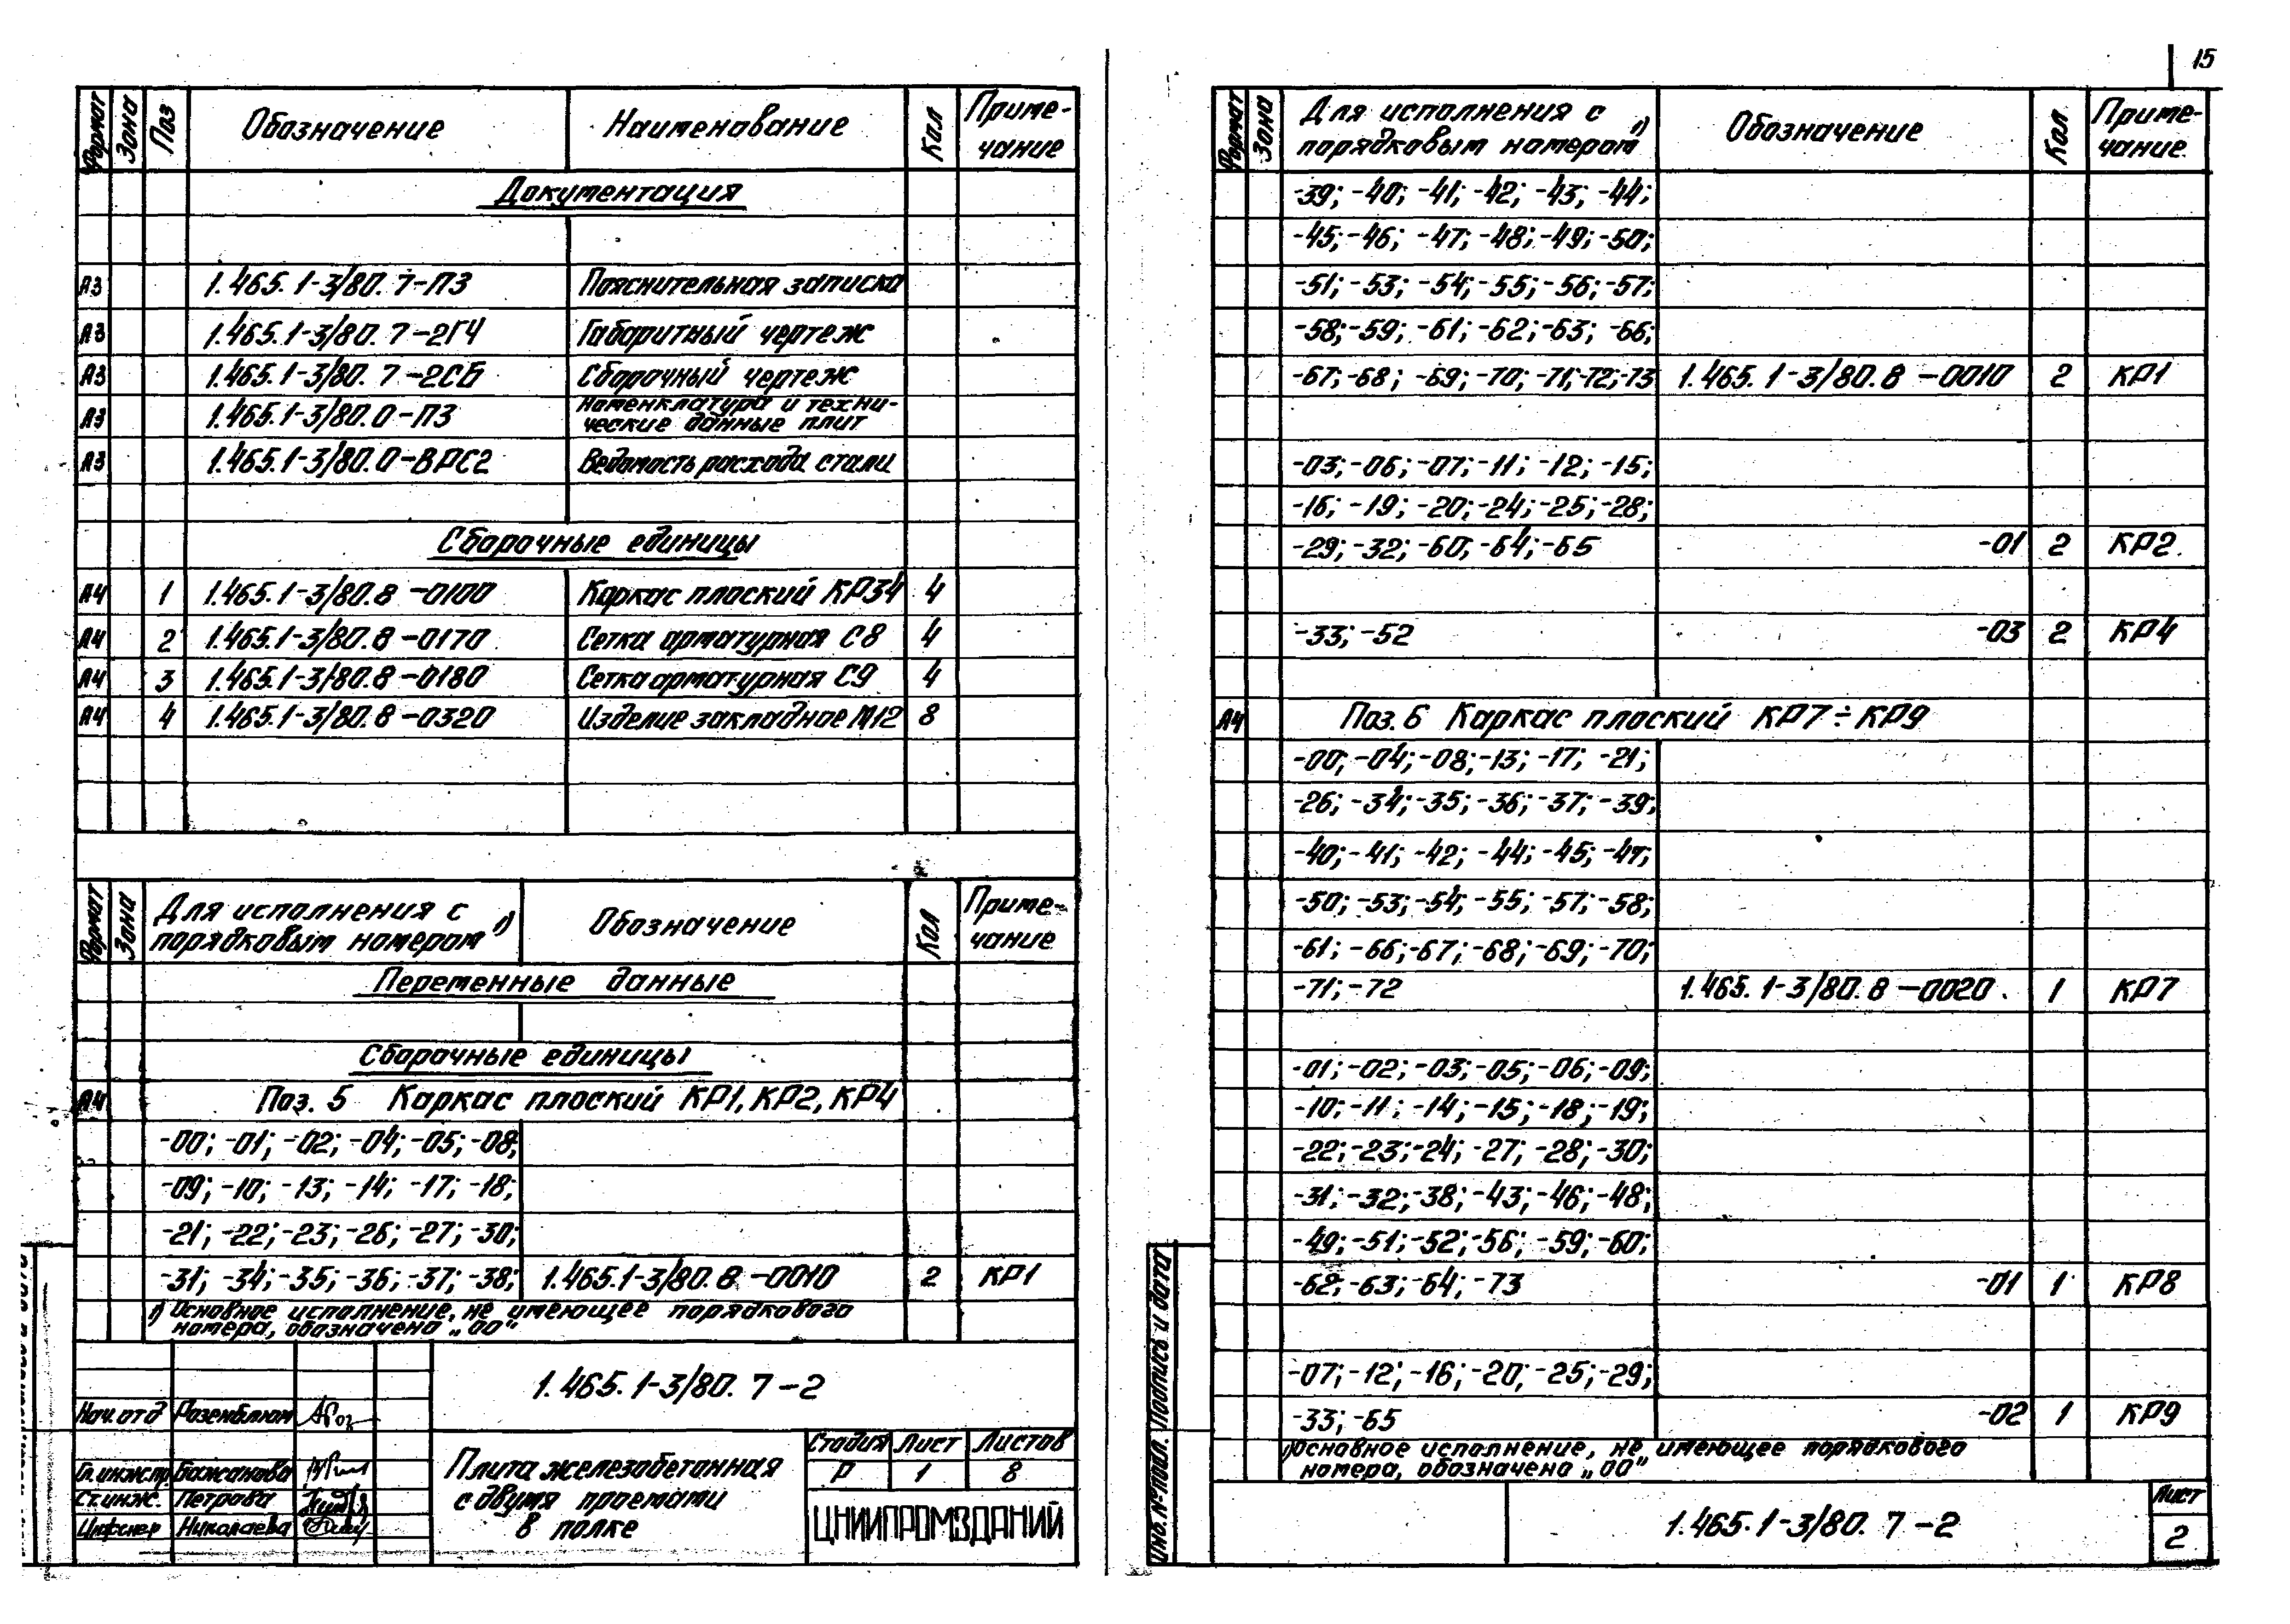 15
Формат Зона Поз Обозначение Наименование Кол Приме-
чание
Документация
А3 1.465.1-3/80.7-ПЗ Пояснительная записка
А3 1.465.1-3/80.7-2ГЧ Габаритный чертеж
А3 1.465.1-3/80.7-2СБ Сборочный чертеж
А3 1.465.1-3/80.0-ПЗ Номенклатура и техни-
ческие данные плит
А3 1.465.1-3/80.0-ВРС2 Ведомость расхода стали
Сборочные единицы
А4 1 1.465.1-3/80.8-0100 Каркас плоский КР34 4
А4 2 1.465.1-3/80.8-0170 Сетка арматурная С8 4
А4 3 1.465.1-3/80.8-0180 Сетка арматурная С9 4
А4 4 1.465.1-3/80.8-0320 Изделие закладное М12 8
Формат Зона Для исполнения с
порядковым номером 1) Обозначение Кол Приме-
чание
Переменные данные
Сборочные единицы
А4 Поз. 5 Каркас плоский КР1, КР2, КР4
-00; -01; -02; -04; -05; -08;
-09; -10; -13; -14; -17; -18;
-21; -22; -23; -26; -27; -30;
-31; -34; -35; -36; -37; -38; 1.465.1-3/80.8-0010 2 КР1
1) Основное исполнение, не имеющее порядкового
номера, обозначено „00"
1.465.1-3/80.7-2
Нач.отд Розенблюм
Гл.инж.пр. Бажанова
Ст.инж. Петрова
Инженер Николаева
Плита железобетонная
с двумя проемами
в полке
Стадия Лист Листов
Р 1 8
ЦНИИПРОМЗДАНИЙ
Формат Зона Для исполнения с
порядковым номером 1) Обозначение Кол Приме-
чание
-39; -40; -41; -42; -43; -44;
-45; -46; -47; -48; -49; -50;
-51; -53; -54; -55; -56; -57;
-58; -59; -61; -62; -63; -66;
-67; -68; -69; -70; -71; -72; -73 1.465.1-3/80.8-0010 2 КР1
-03; -06; -07; -11; -12; -15;
-16; -19; -20; -24; -25; -28;
-29; -32; -60; -64; -65 -01 2 КР2
-33; -52 -03 2 КР4
А4 Поз. 6 Каркас плоский КР7÷КР9
-00; -04; -08; -13; -17; -21;
-26; -34; -35; -36; -37; -39;
-40; -41; -42; -44; -45; -47;
-50; -53; -54; -55; -57; -58;
-61; -66; -67; -68; -69; -70;
-71; -72 1.465.1-3/80.8-0020 1 КР7
-01; -02; -03; -05; -06; -09;
-10; -11; -14; -15; -18; -19;
-22; -23; -24; -27; -28; -30;
-31; -32; -38; -43; -46; -48;
-49; -51; -52; -56; -59; -60;
-62; -63; -64; -73 -01 1 КР8
-07; -12; -16; -20; -25; -29;
-33; -65 -02 1 КР9
1) Основное исполнение, не имеющее порядкового
номера, обозначено „00"
Инв.№подл. Подпись и дата
1.465.1-3/80.7-2
Лист
2